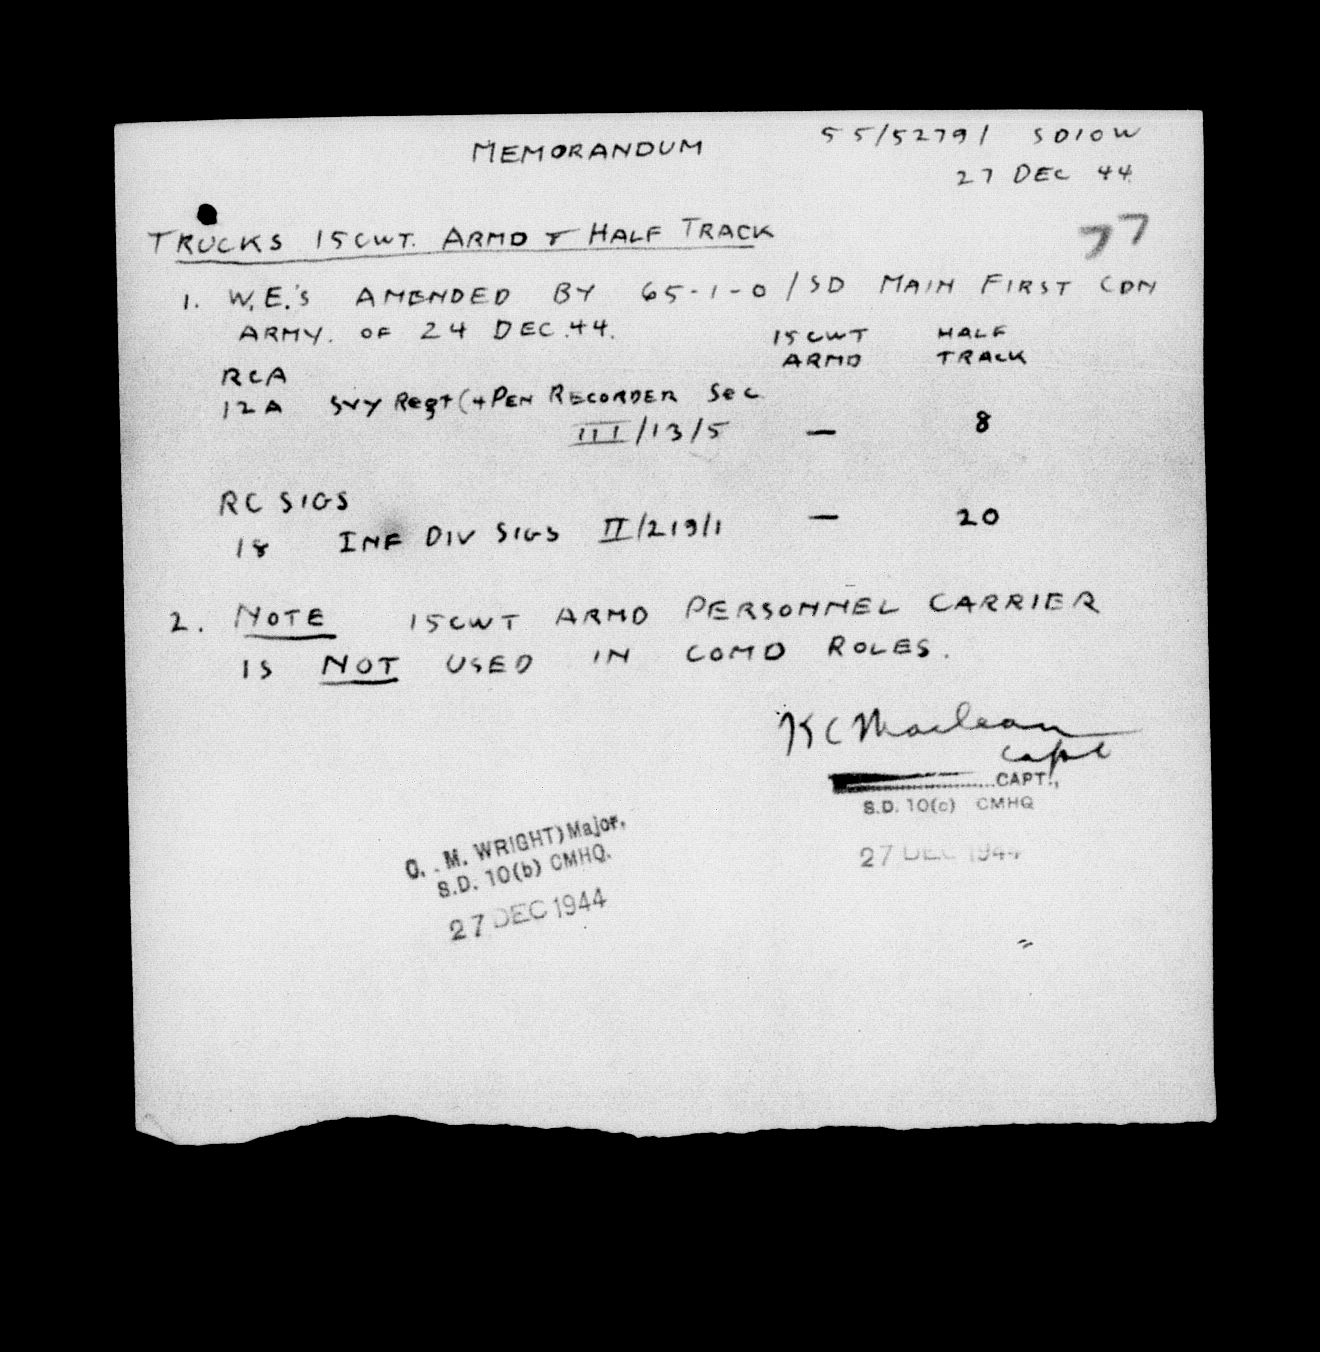 MEMORANDUM
55/5279/ SD10W
27 DEC 44
77
TRUCKS 15CWT. ARMD + HALF TRACK
1. W.E.'s AMENDED BY 65-1-0/SD MAIN FIRST CDN
ARMY. OF 24 DEC.44.
15CWT ARMD
HALF TRACK
RCA
12A SVY Regt (+ PEN RECORDER Sec
III/13/5 — 8
RC SIGS
18 INF DIV SIGS II/219/1 — 20
2. NOTE 15CWT ARMD PERSONNEL CARRIER
IS NOT USED IN COMD ROLES.
KC Maclean
Capt
CAPT.,
S.D. 10(c) CMHQ
27 DEC 1944
G. . M. WRIGHT) Major,
S.D. 10(b) CMHQ.
27 DEC 1944